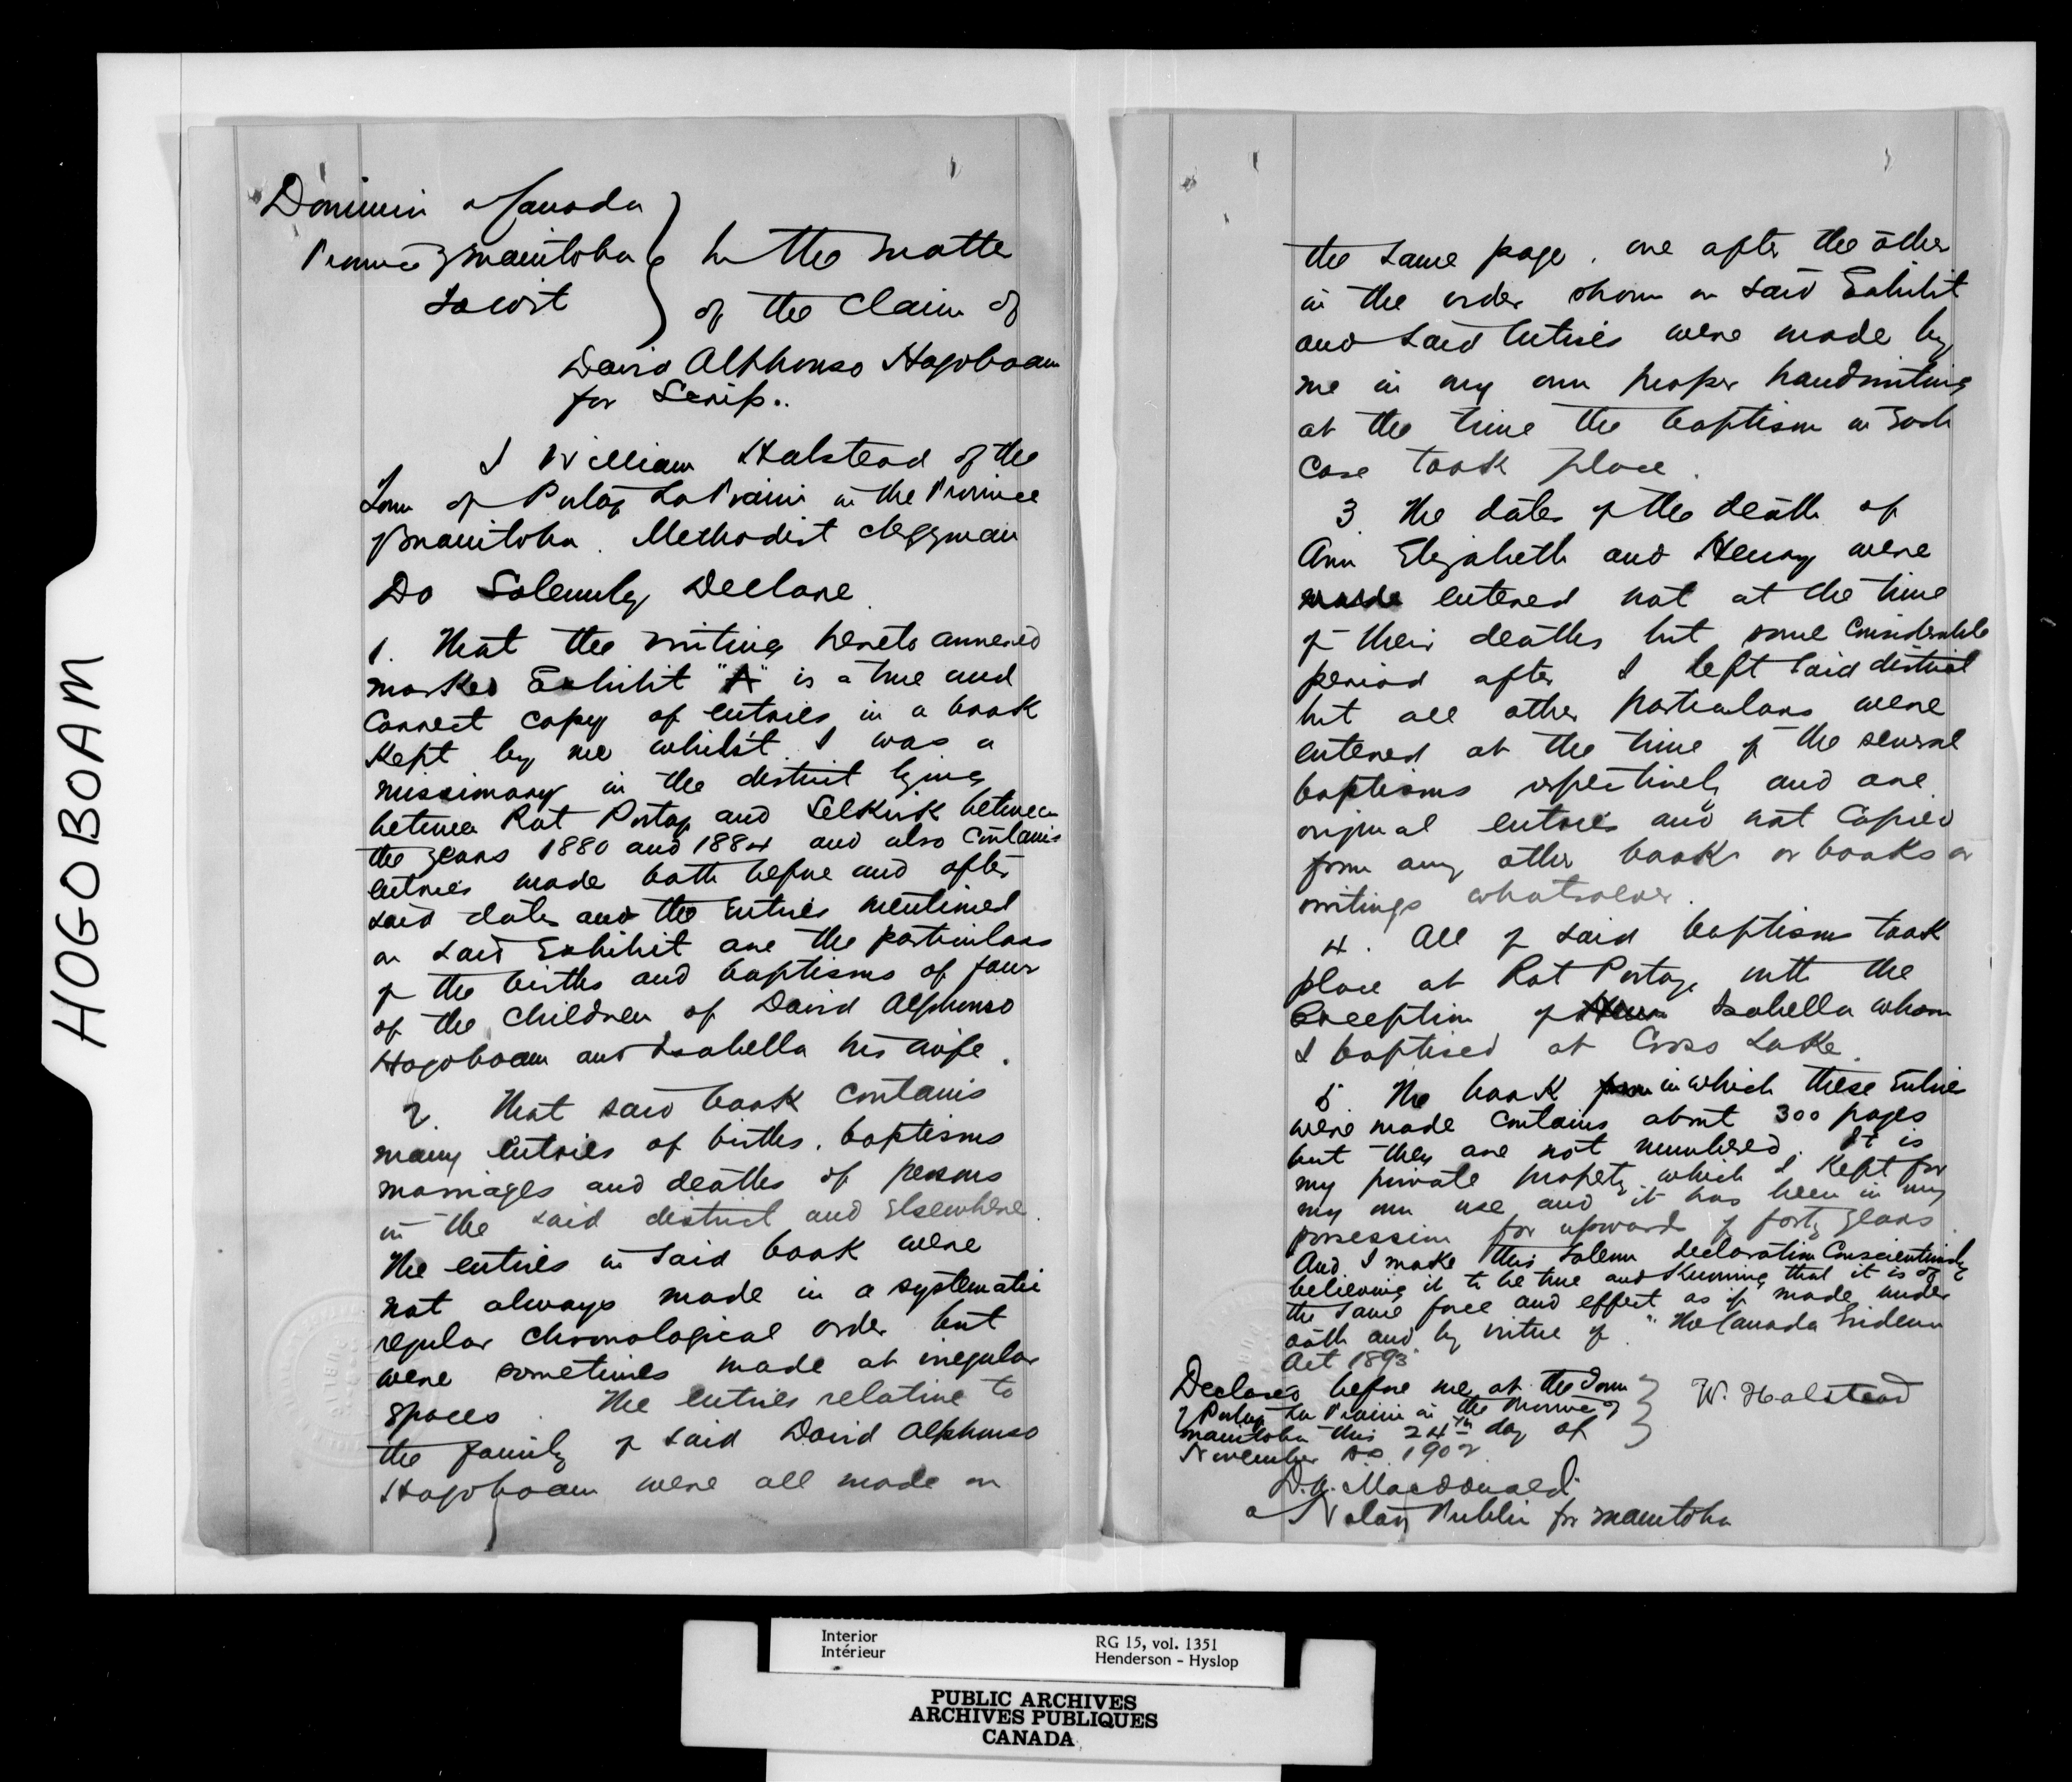 HOGOBOAM
Dominion of Canada
Province of Manitoba
To wit
In the matter
of the Claim of
David Alphonso Hogoboam
for Scrip..
I William Halstead of the
Town of Portage La Prairie in the Province
of Manitoba. Methodist clergyman
Do Solemnly Declare.
1. That the writing hereto annexed
marked Exhibit "A" is a true and
Correct copy of entries in a book
Kept by me whilst I was a
missionary in the district lying
between Rat Portage and Selkirk between
the years 1880 and 1884 and also Contains
entries made both before and after
said date and the Entries mentioned
on said Exhibit are the particulars
of the births and baptisms of four
of the Children of David Alphonso
Hogoboam and Isabella his wife.
2. That said book contains
many Entries of births, baptisms
marriages and deaths of persons
in the said district and Elsewhere.
The entries in said book were
not always made in a systematic
regular Chronological order but
were sometimes made at irregular
spaces. The entries relative to
the family of said David Alphonso
Hogoboam were all made on
the same page, one after the other
in the order shown on said Exhibit
and said Entries were made by
me in my own proper handwriting
at the time the baptism in Each
Case took place.
3. The dates of the death of
Ann Elizabeth and Henry were
made entered not at the time
of their deaths but some Considerable
period after I left said district
but all other particulars were
entered at the time of the several
baptisms respectively and are
original entries and not Copied
from any other book or books or
writings whatsoever.
4. All of said baptisms took
place at Rat Portage with the
Exception of Isabella whom
I baptised at Cross Lake.
5. The book from in which these Entries
were made Contains about 300 pages
but they are not numbered. It is
my private property which I Kept for
my own use and it has been in my
possession for upwards of forty years.
And I make this solemn declaration Conscientiously
believing it to be true and Knowing that it is of
the same force and effect as if made under
oath and by virtue of "The Canada Evidence
Act 1893.
Declared before me at the Town
of Portage La Prairie in the Province of
Manitoba this 24th day of
November AD. 1902
W. Halstead
D.A. Macdonald.
a Notary Public for Manitoba
Interior
Intérieur
RG 15, vol. 1351
Henderson - Hyslop
PUBLIC ARCHIVES
ARCHIVES PUBLIQUES
CANADA